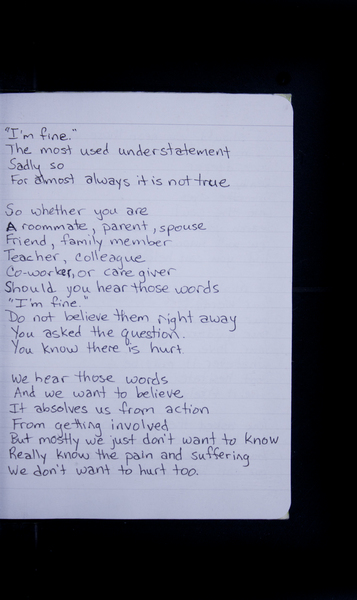 "I'm fine."
The most used understatement
Sadly so
For almost always it is not true
So whether you are
A roommate, parent, spouse
Friend, family member
Teacher, colleague
Co-worker, or care giver
Should you hear those words
"I'm fine."
Do not believe them right away
You asked the question.
You know there is hurt.
We hear those words
And we want to believe
It absolves us from action
From getting involved
But mostly we just don't want to know
Really know the pain and suffering
We don't want to hurt too.